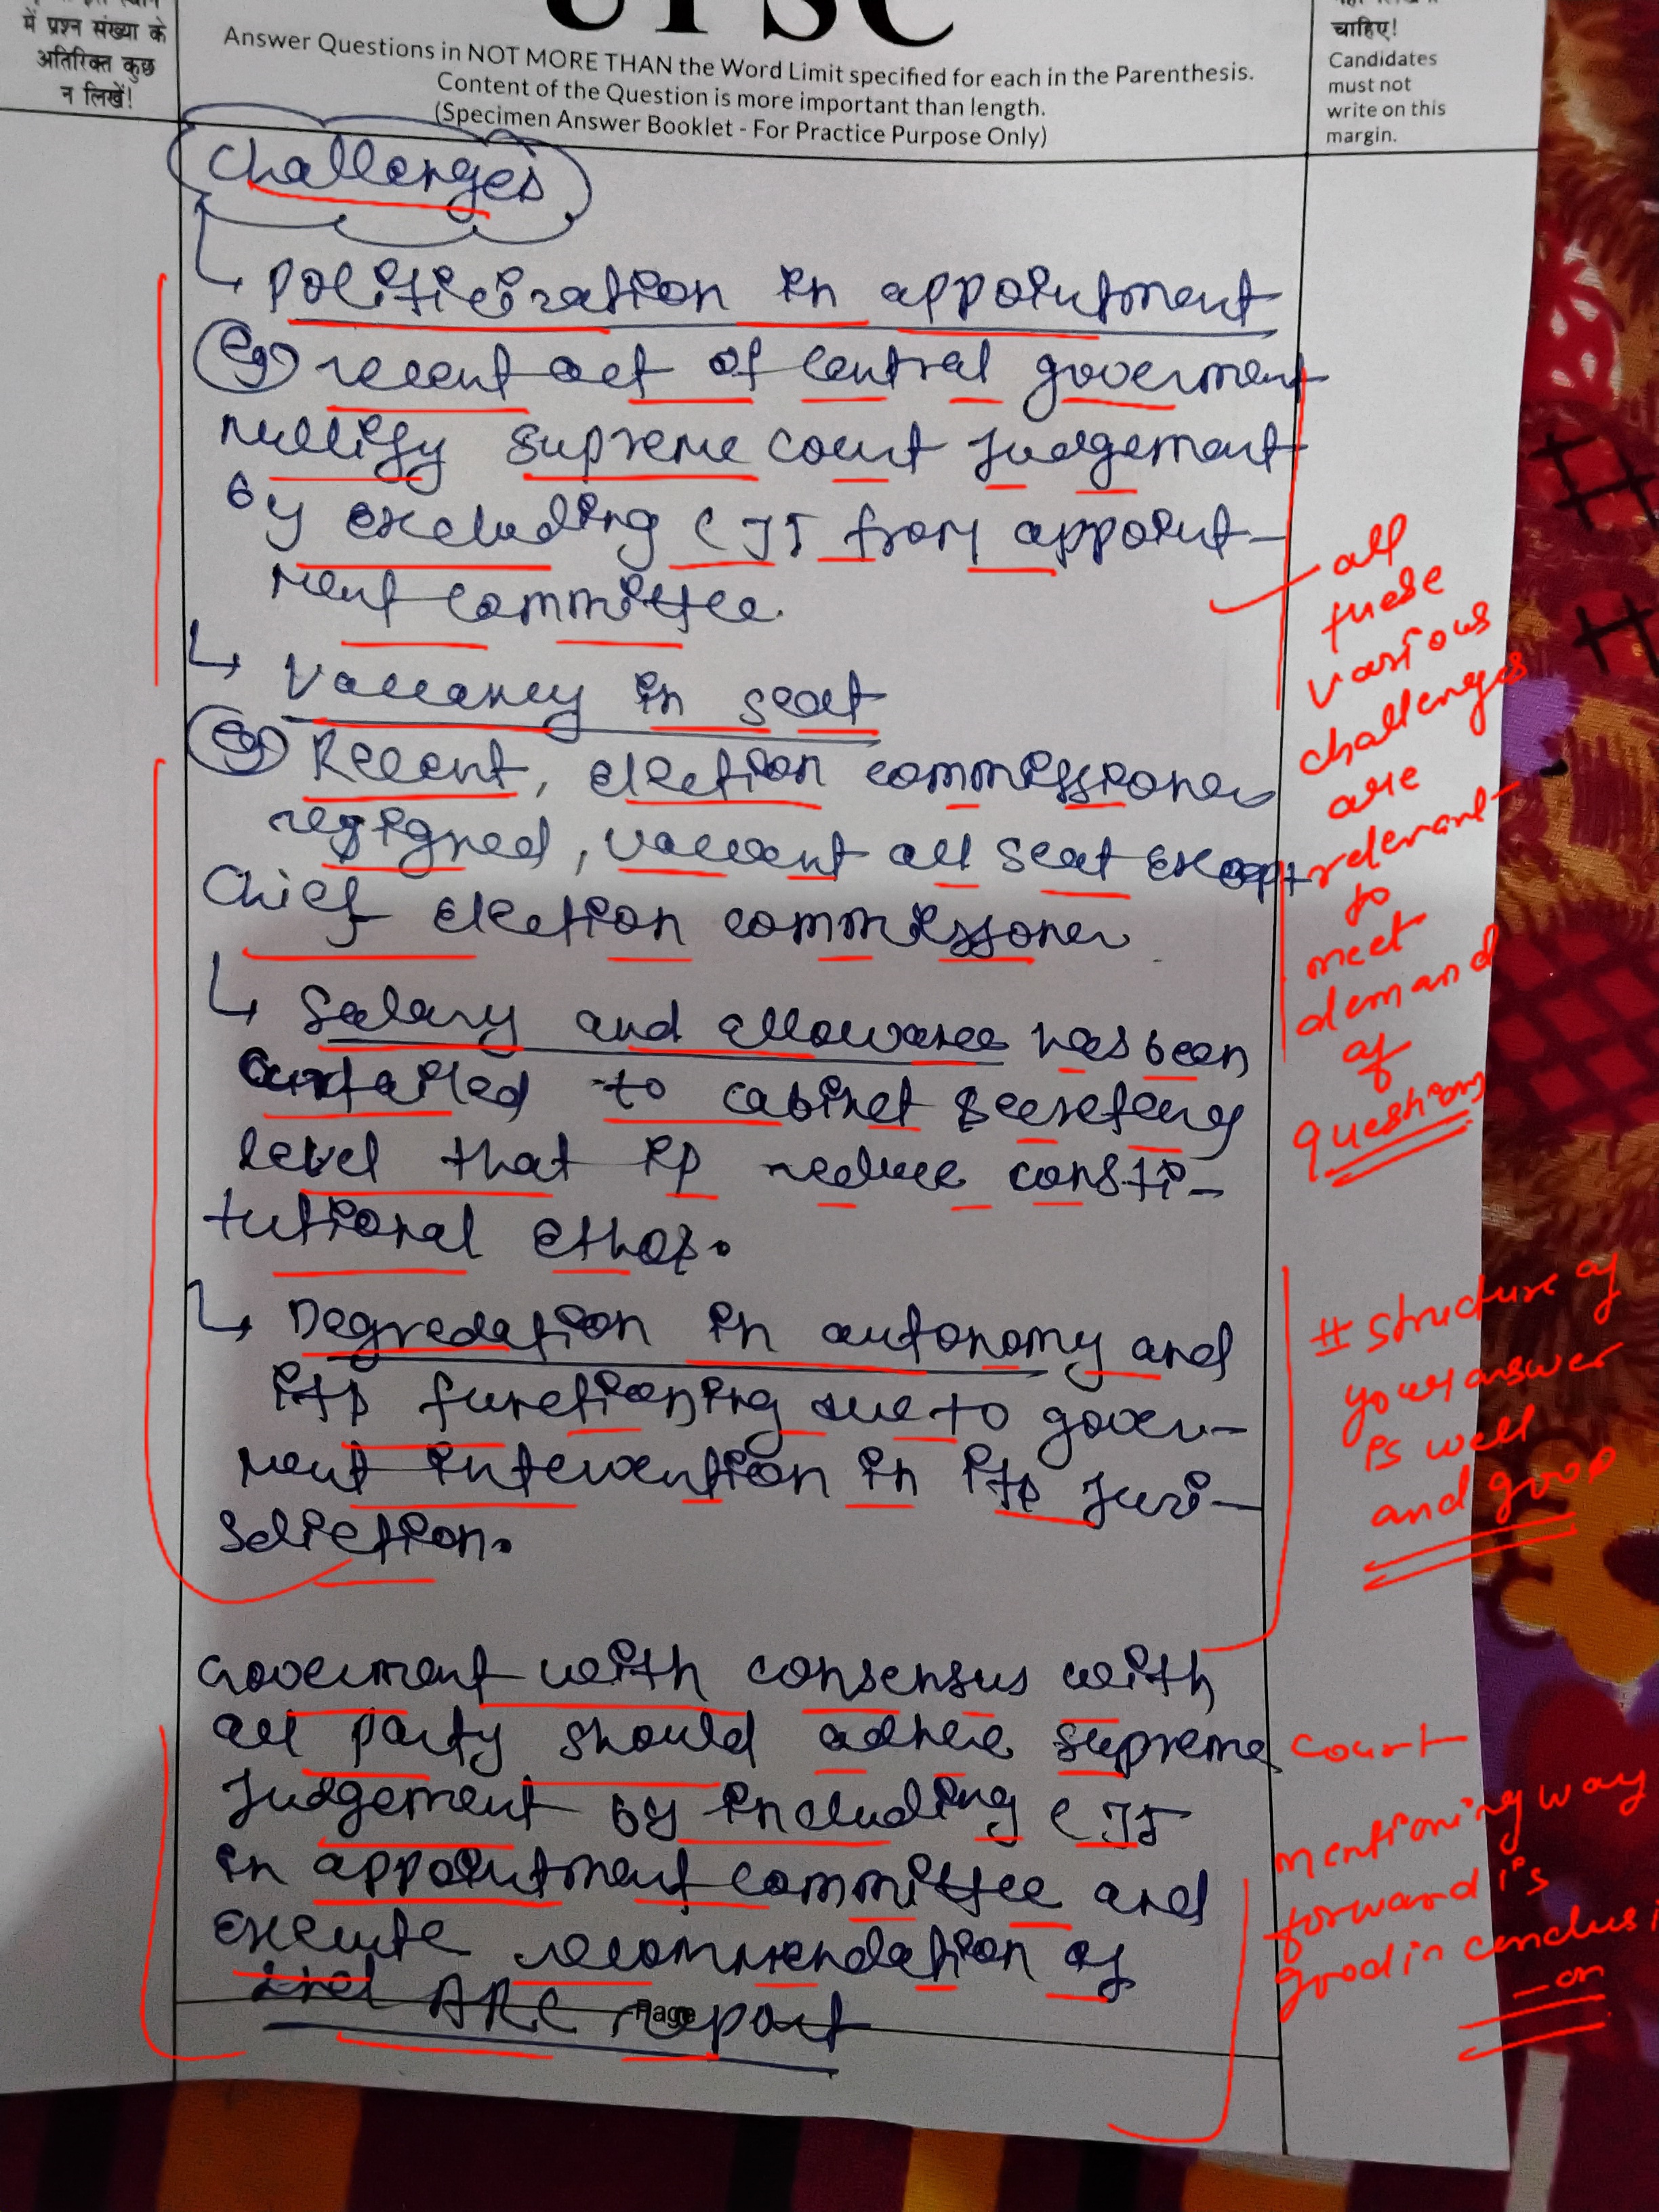 में प्रश्न संख्या के
अतिरिक्त कुछ
न लिखें!
UPSC
Answer Questions in NOT MORE THAN the Word Limit specified for each in the Parenthesis.
Content of the Question is more important than length.
(Specimen Answer Booklet - For Practice Purpose Only)
चाहिए!
Candidates
must not
write on this
margin.
Challenges
↳ Politicization in appointment
eg recent act of central goverment
nullify supreme court Judgement
by excluding CJI from appoint-
ment committee.
↳ Vaccancy in seat
eg Recent, election commissioner
resigned, vaccant all seat except
Chief election commissioner
↳ Salary and allowance has been
curtailed to cabinet secretary
level that is reduce consti-
tutional ethos.
↳ Degredation in autonomy and
its functioning due to gover-
ment intervention in its Juri-
sdiction.
Goverment with consensus with
all party should adhere supreme court
Judgement by including CJI
in appointment committee and
execute recommendation of
2nd ARC report
Page
all
these
various
challenges
are
relevant
to
meet
demand
of
questions
# structure of
your answer
is well
and good
mentioning way
forward is
good in conclusi
-on